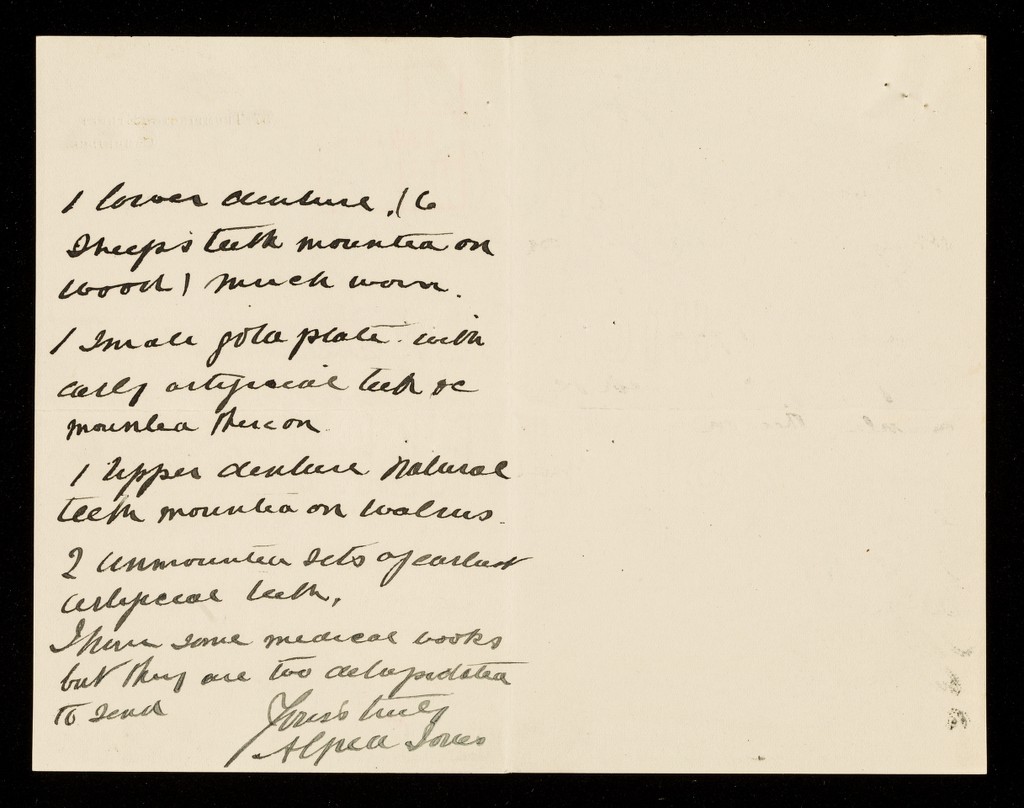 1 lower denture, (6
Sheep's teeth mounted on
wood) much worn.
1 Small gold plate with
early artificial teeth &c
mounted thereon
1 Upper denture Natural
teeth mounted on Walrus.
2 unmounted sets of earliest
artificial teeth,
I have some medical books
but they are too delapidated
to send
Yours truly
Alfred Jones